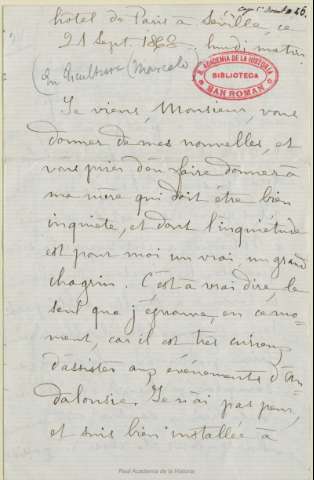 hôtel de Paris à Séville, ce
21 Sept 1868 - lundi matin.
(en escultura Marcelo
R. ACADEMIA DE LA HISTORIA
BIBLIOTECA
SAN ROMAN
Je viens, Monsieur, vous
donner de mes nouvelles, et
vous prier d'en faire donner à
ma mère qui doit être bien
inquiète, et dont l'inquiétude
est pour moi un vrai, un grand
chagrin. C'est à vrai dire, le
seul que j'éprouve, en ce mo-
ment, car il est très curieux
d'assister aux événements d'An
dalousie. Je n'ai pas peur,
et suis bien installée à
Real Academia de la Historia